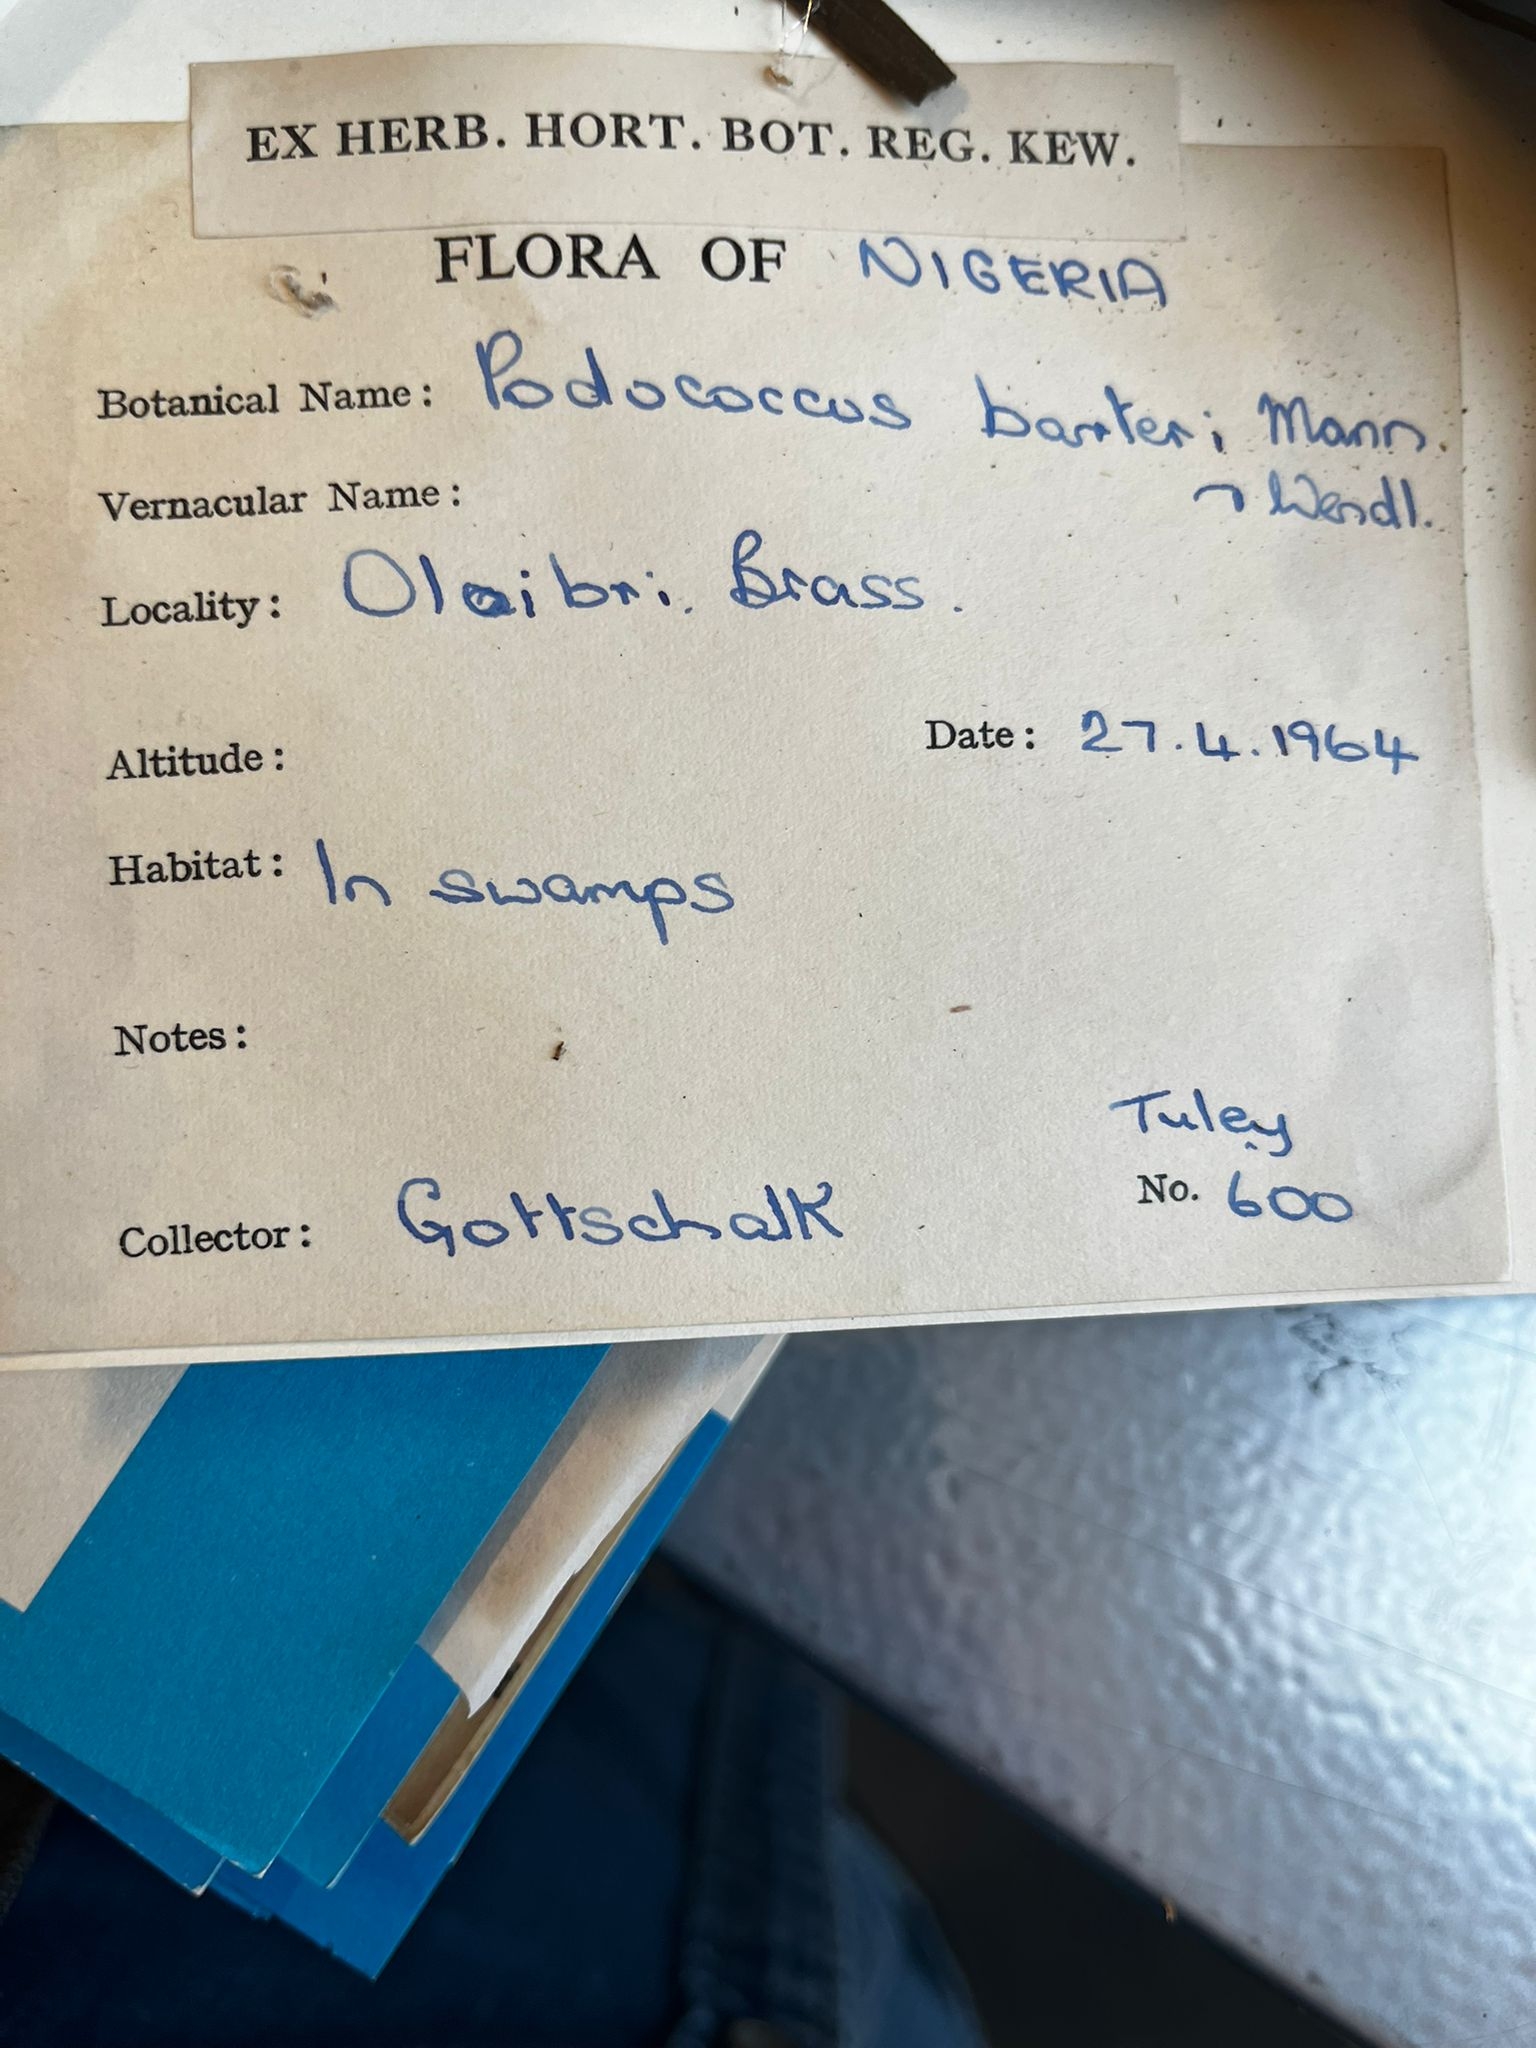 EX HERB. HORT. BOT. REG. KEW.
FLORA OF NIGERIA
Botanical Name: Podococcus barteri Mann.
Vernacular Name: & Wendl.
Locality: Oloibri. Brass.
Altitude: Date: 27.4.1964
Habitat: In swamps
Notes:
Tuley
No. 600
Collector: Gottschalk